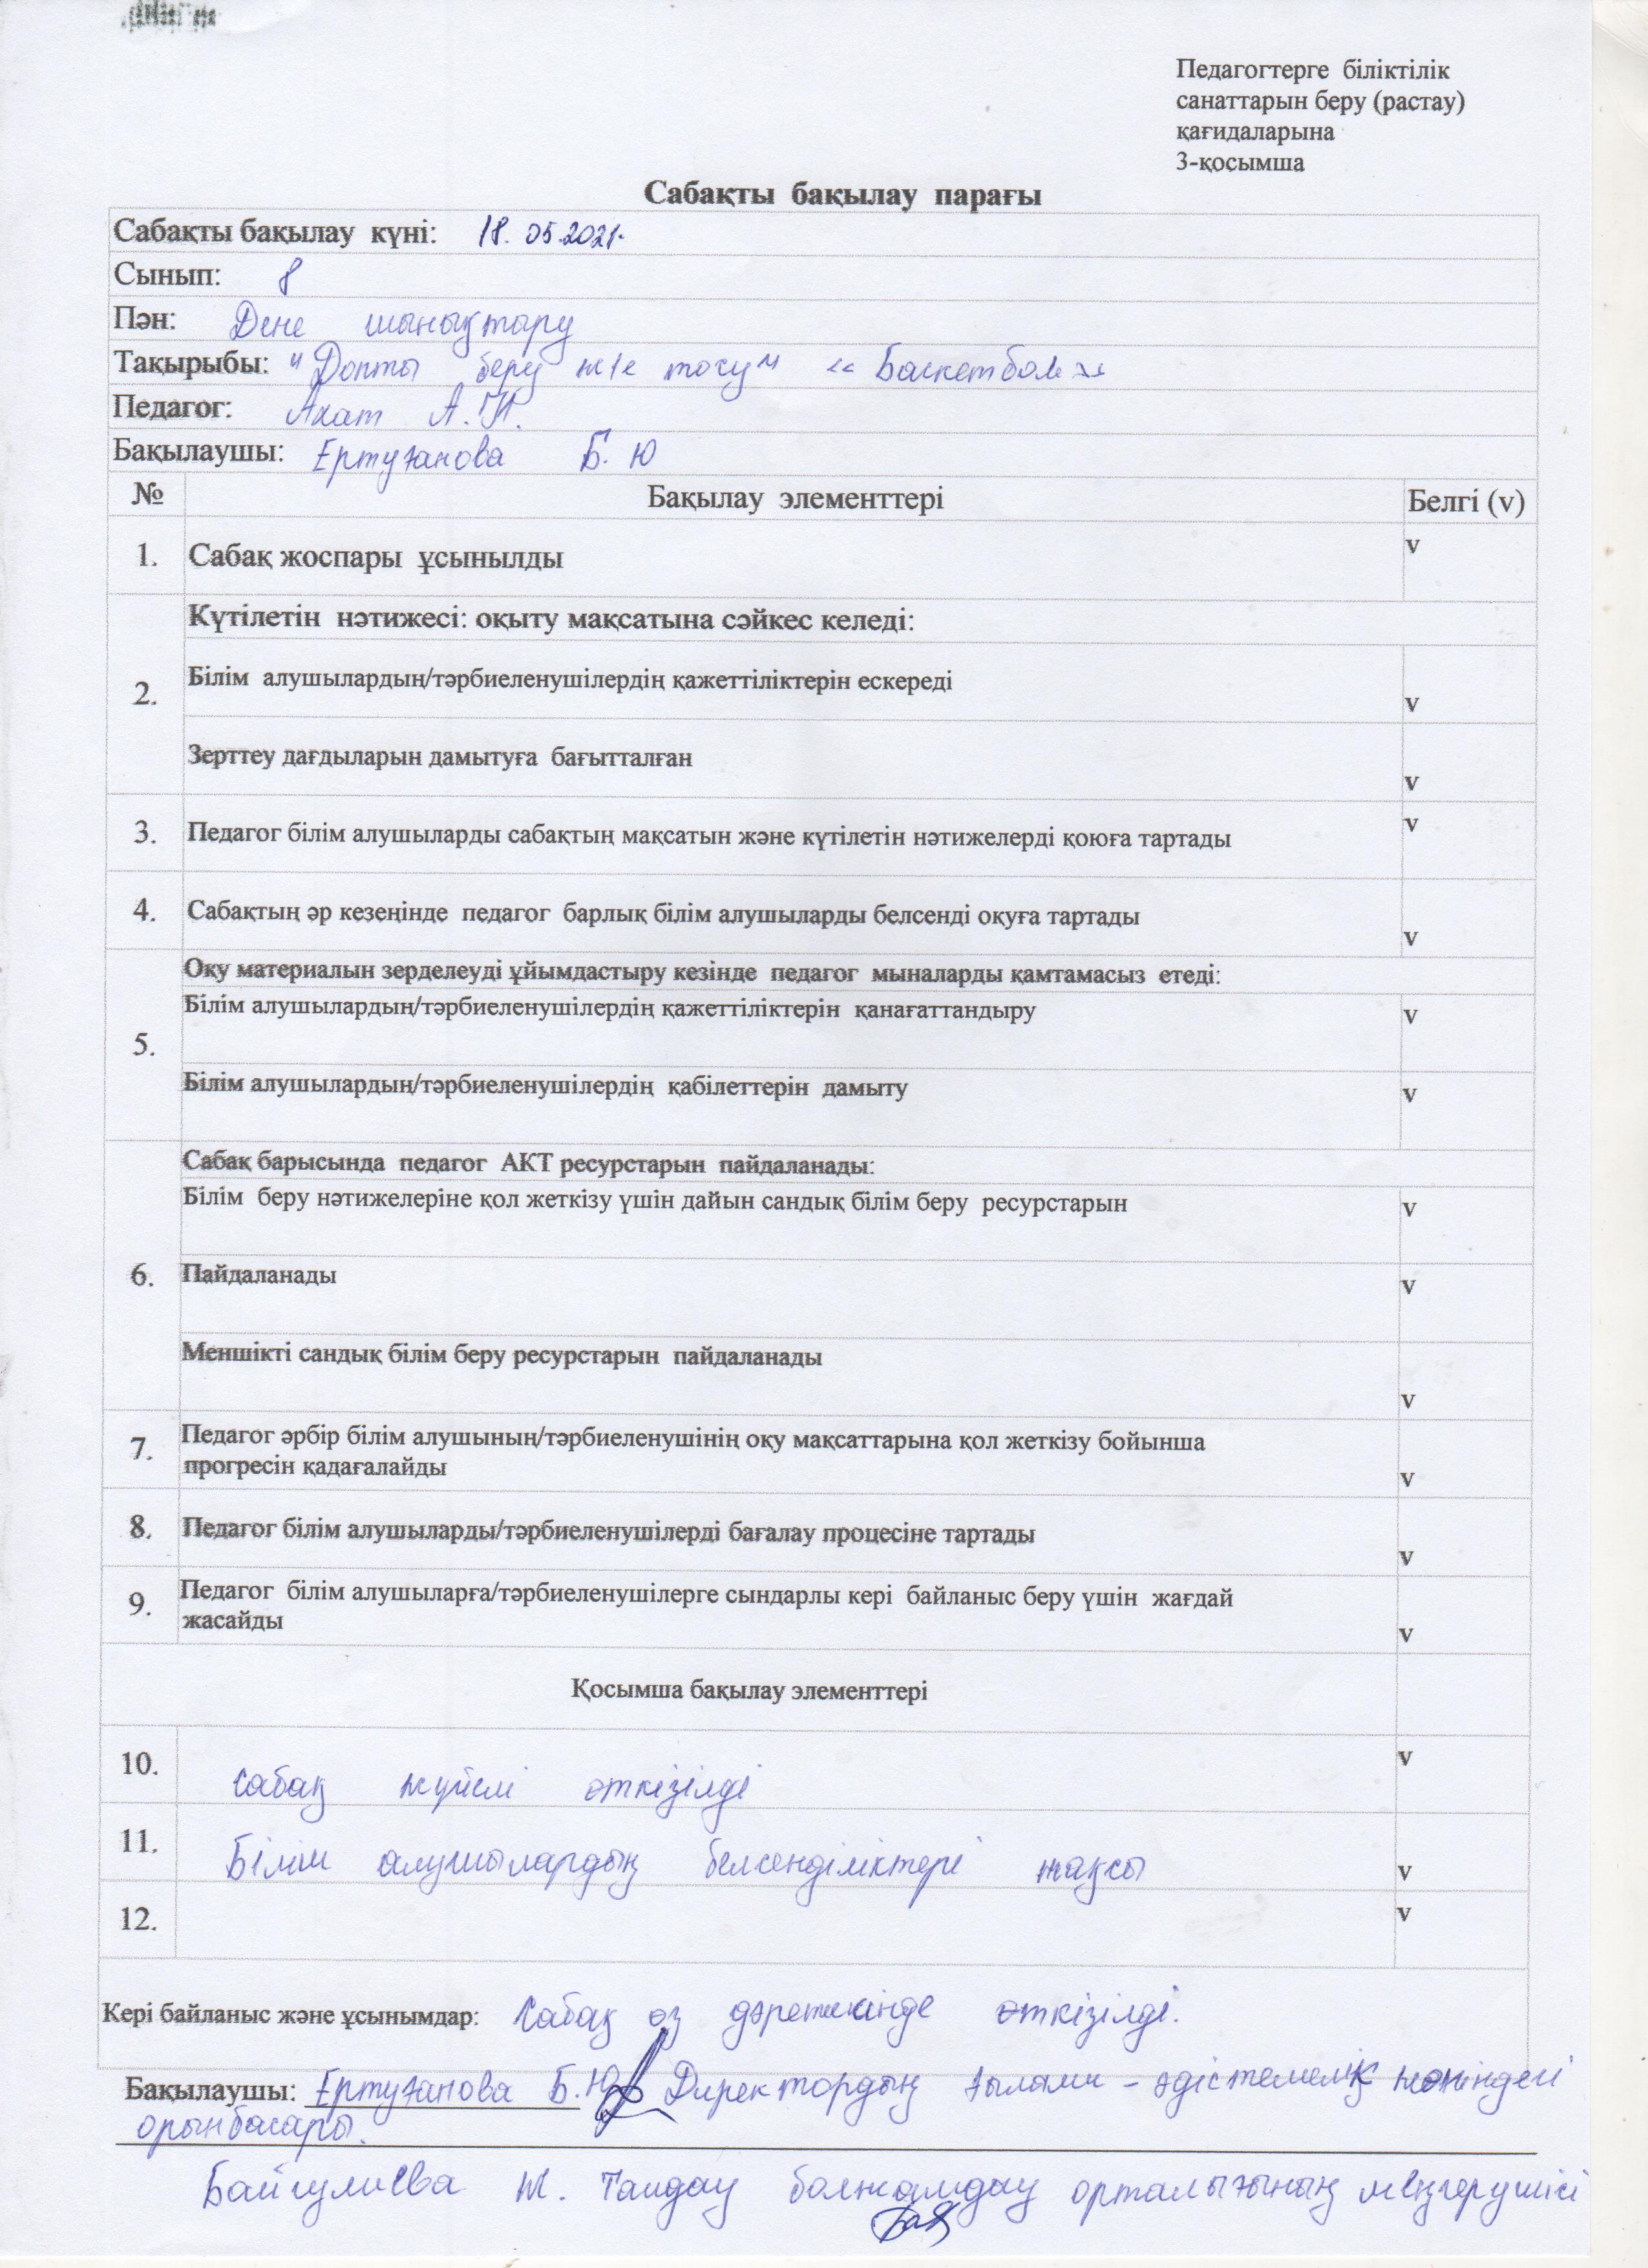 Педагогтерге біліктілік
санаттарын беру (растау)
қағидаларына
3-қосымша
Сабақты бақылау парағы
Сабақты бақылау күні: 18.05.2021.
Сынып: 8
Пән: Дене шынықтыру
Тақырыбы: "Допты беру және тосу" «Баскетбол»
Педагог: Ахат А.
Бақылаушы: Ертуғанова Б. Ю
№ Бақылау элементтері Белгі (v)
1. Сабақ жоспары ұсынылды v
Күтілетін нәтижесі: оқыту мақсатына сәйкес келеді:
2. Білім алушылардың/тәрбиеленушілердің қажеттіліктерін ескереді v
Зерттеу дағдыларын дамытуға бағытталған v
3. Педагог білім алушыларды сабақтың мақсатын және күтілетін нәтижелерді қоюға тартады v
4. Сабақтың әр кезеңінде педагог барлық білім алушыларды белсенді оқуға тартады v
Оқу материалын зерделеуді ұйымдастыру кезінде педагог мыналарды қамтамасыз етеді:
5. Білім алушылардың/тәрбиеленушілердің қажеттіліктерін қанағаттандыру v
Білім алушылардың/тәрбиеленушілердің қабілеттерін дамыту v
Сабақ барысында педагог АКТ ресурстарын пайдаланады:
Білім беру нәтижелеріне қол жеткізу үшін дайын сандық білім беру ресурстарын v
6. Пайдаланады v
Меншікті сандық білім беру ресурстарын пайдаланады v
7. Педагог әрбір білім алушының/тәрбиеленушінің оқу мақсаттарына қол жеткізу бойынша
прогресін қадағалайды v
8. Педагог білім алушыларды/тәрбиеленушілерді бағалау процесіне тартады v
9. Педагог білім алушыларға/тәрбиеленушілерге сындарлы кері байланыс беру үшін жағдай
жасайды v
Қосымша бақылау элементтері
10. Сабақ жүйелі өткізілді v
11. Білім алушылардың белсенділіктері жақсы v
12. v
Кері байланыс және ұсынымдар: Сабақ өз дәрежесінде өткізілді.
Бақылаушы: Ертуғанова Б.Ю Директордың ғылыми-әдістемелік жөніндегі
орынбасары.
Байгулиева Ж. Талдау болжамдау орталығының меңгерушісі